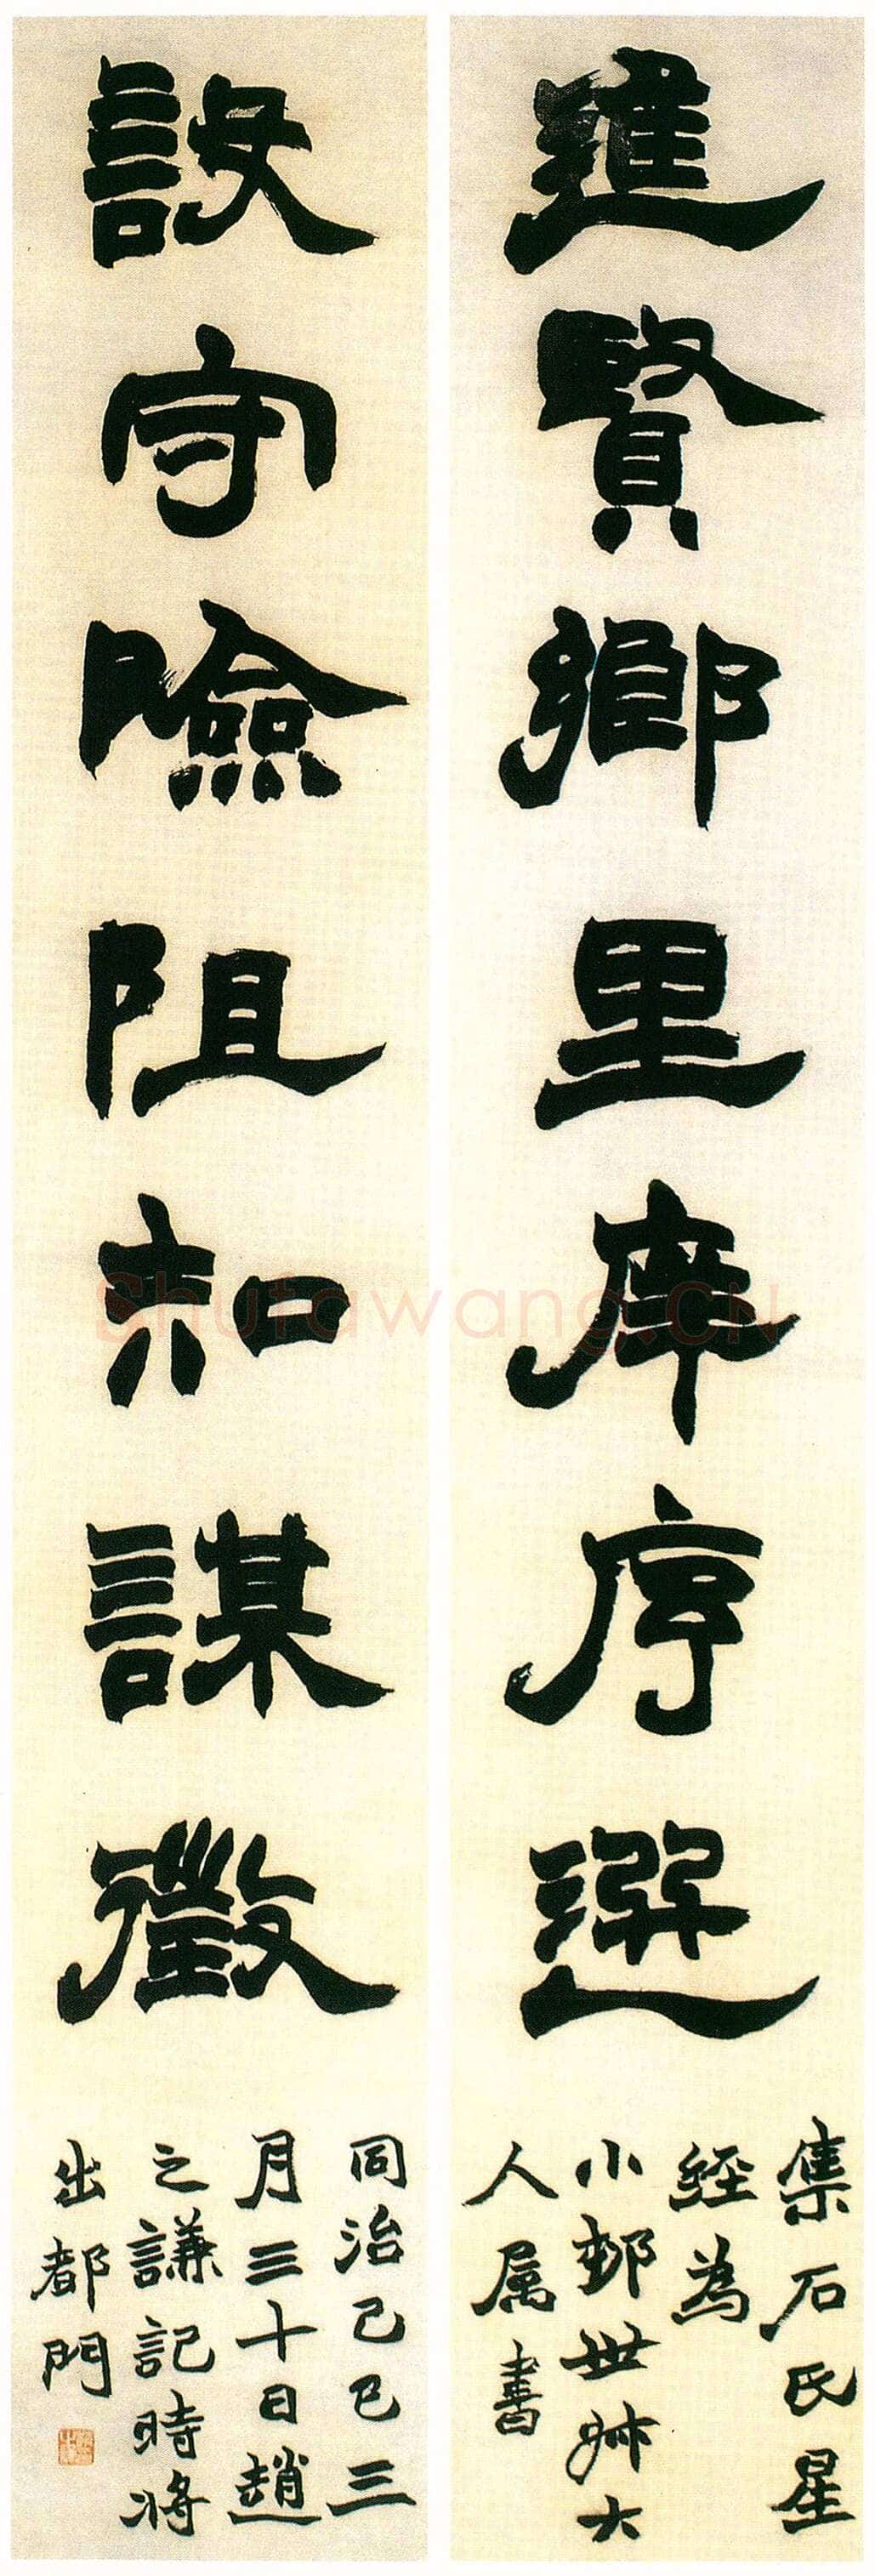 進賢鄉里庠序選
集石氏星
經為
小世叔大
人属書
設守險阻知謀徵
同治己巳三
月三十日趙
之謙記時將
出都門
Shufawang.CN